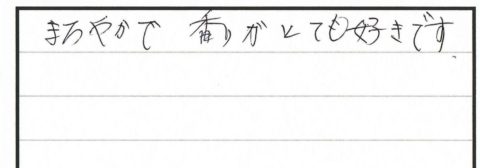 まろやかで 香りがとても好きです